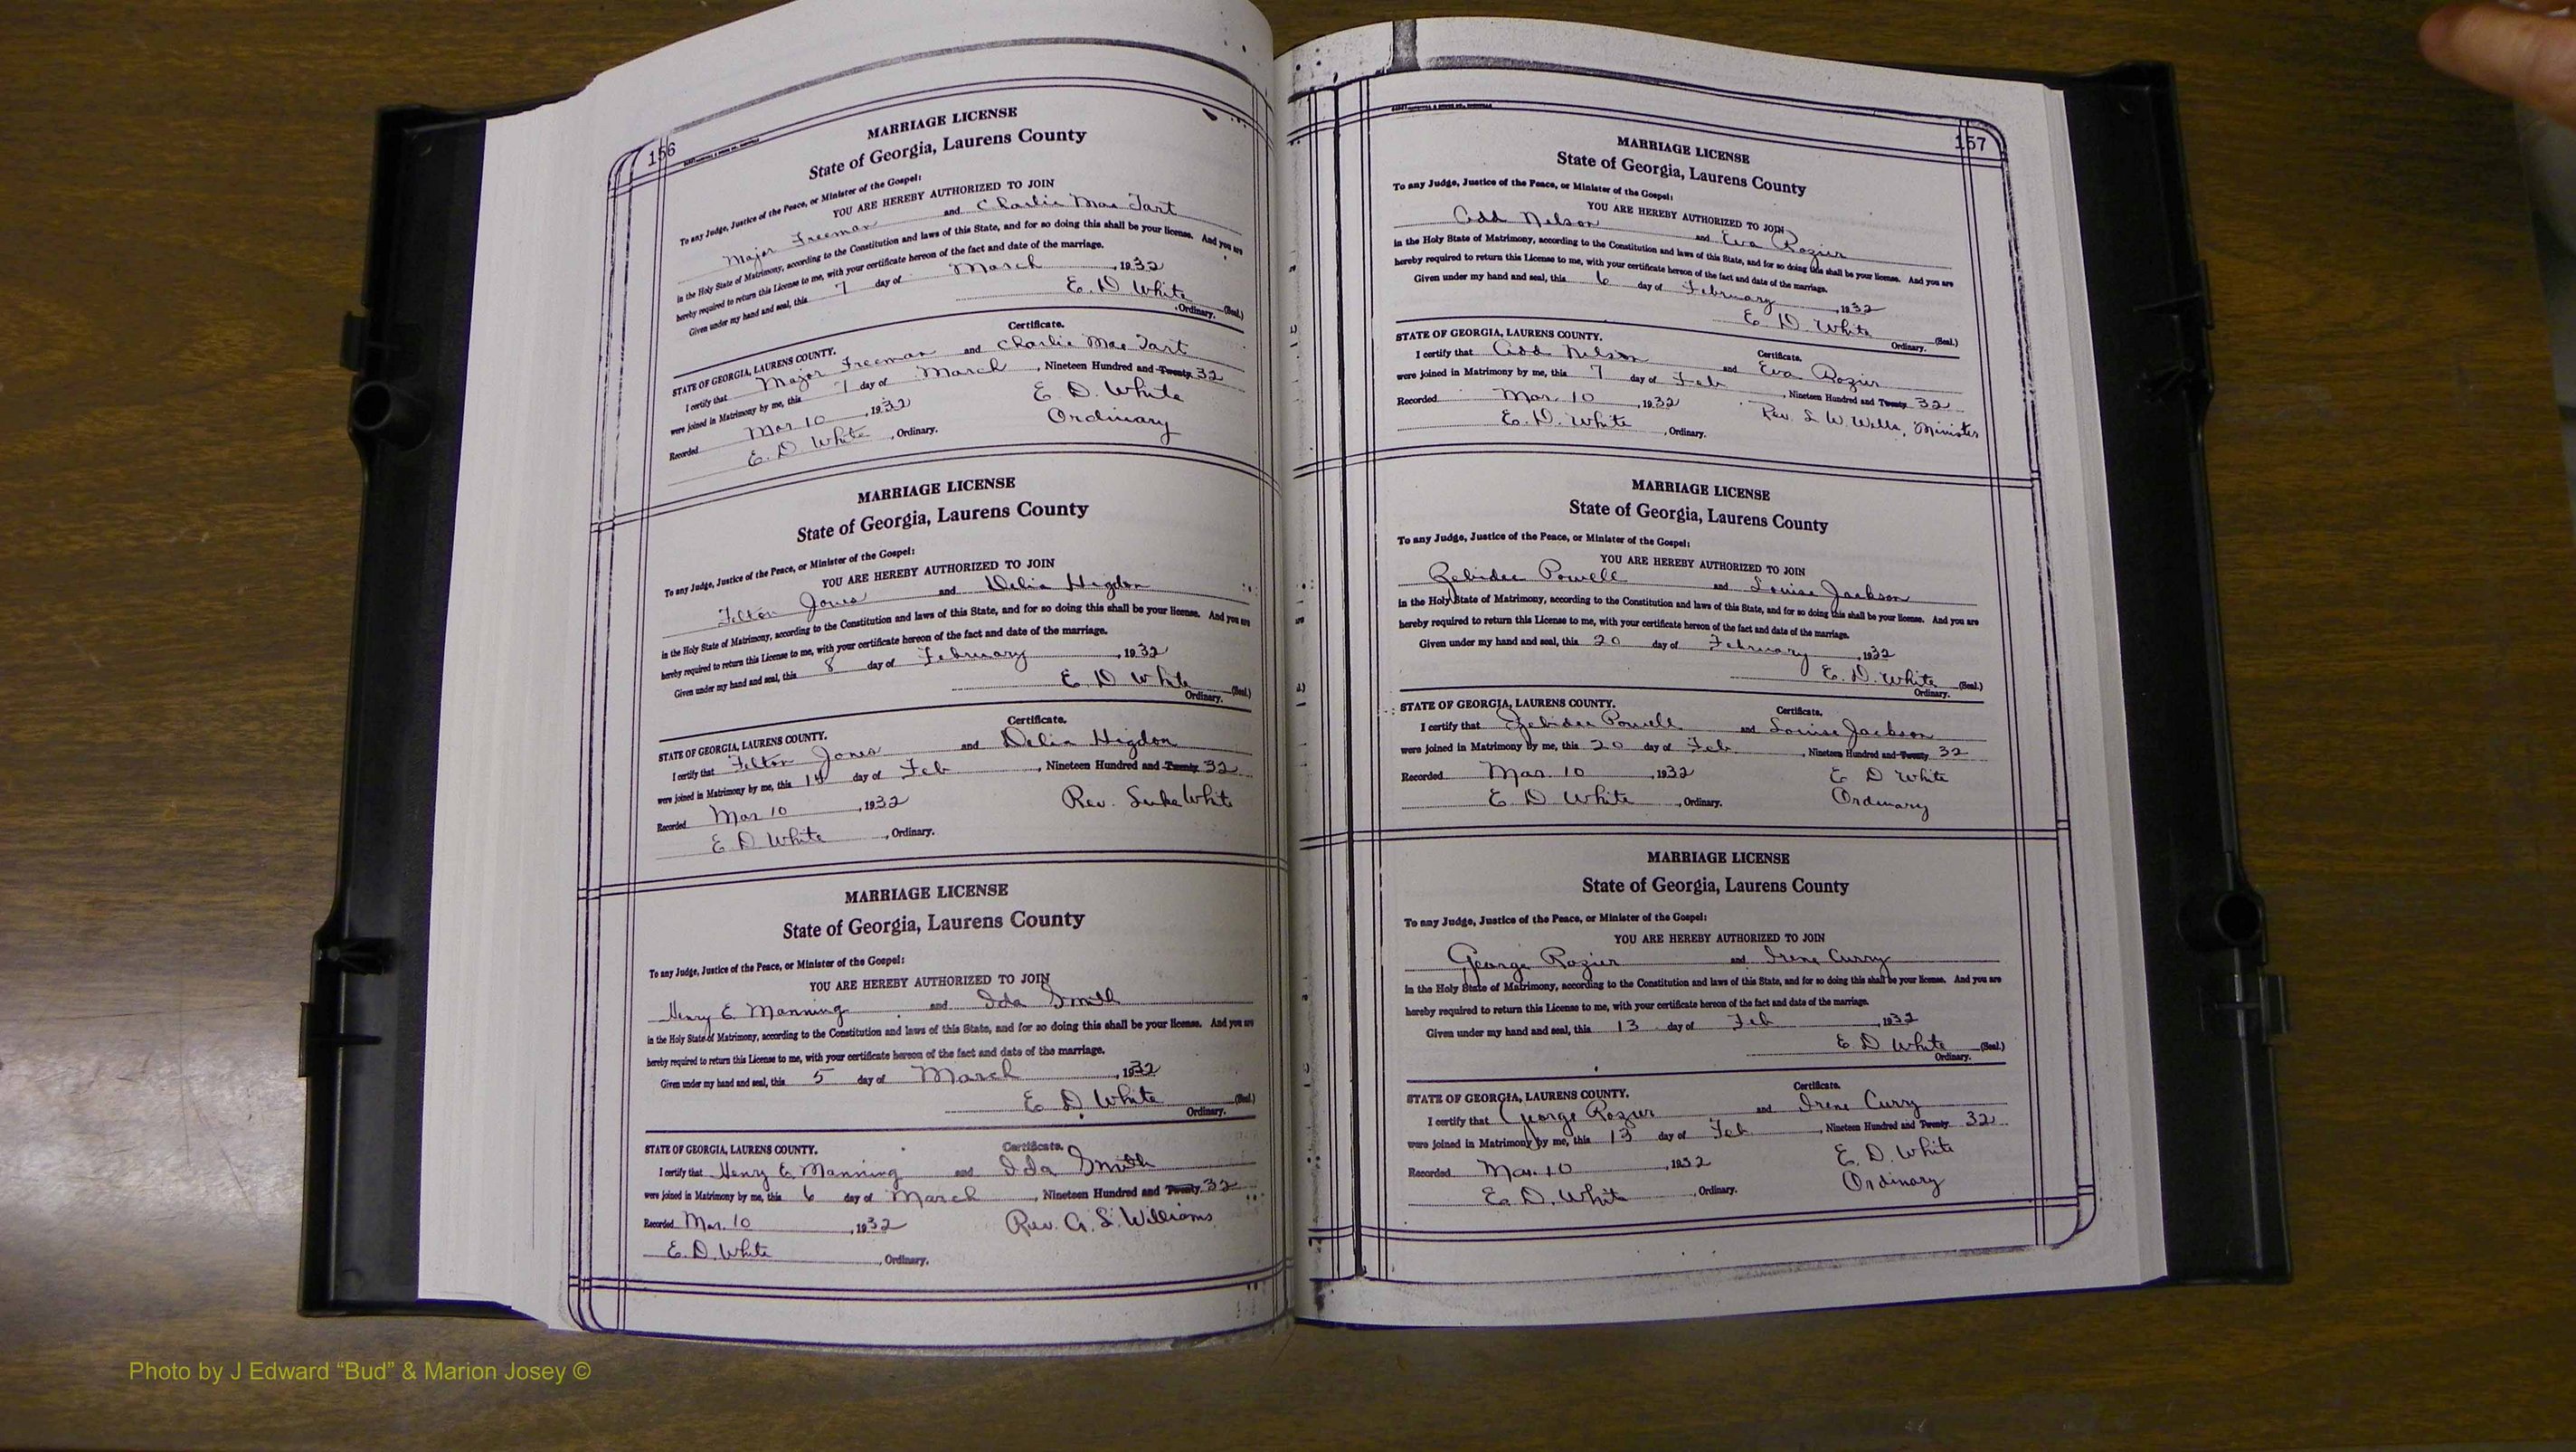 156
MARRIAGE LICENSE
State of Georgia, Laurens County
To any Judge, Justice of the Peace, or Minister of the Gospel:
YOU ARE HEREBY AUTHORIZED TO JOIN
Major Freeman and Charlie Mae Tart
in the Holy State of Matrimony, according to the Constitution and laws of this State, and for so doing this shall be your license. And you are
hereby required to return this License to me, with your certificate hereon of the fact and date of the marriage.
Given under my hand and seal, this 7 day of March, 1932
E. D. White (Seal.)
Ordinary.
Certificate.
STATE OF GEORGIA, LAURENS COUNTY.
I certify that Major Freeman and Charlie Mae Tart
were joined in Matrimony by me, this 7 day of March, Nineteen Hundred and Twenty 32
Recorded Mar 10, 1932 E. D. White
E. D. White, Ordinary. Ordinary
MARRIAGE LICENSE
State of Georgia, Laurens County
To any Judge, Justice of the Peace, or Minister of the Gospel:
YOU ARE HEREBY AUTHORIZED TO JOIN
Felton Jones and Delia Higdon
in the Holy State of Matrimony, according to the Constitution and laws of this State, and for so doing this shall be your license. And you are
hereby required to return this License to me, with your certificate hereon of the fact and date of the marriage.
Given under my hand and seal, this 8 day of February, 1932
E. D White (Seal.)
Ordinary.
Certificate.
STATE OF GEORGIA, LAURENS COUNTY.
I certify that Felton Jones and Delia Higdon
were joined in Matrimony by me, this 14 day of Feb, Nineteen Hundred and Twenty 32
Recorded Mar 10, 1932 Rev. Luke White
E D White, Ordinary.
MARRIAGE LICENSE
State of Georgia, Laurens County
To any Judge, Justice of the Peace, or Minister of the Gospel:
YOU ARE HEREBY AUTHORIZED TO JOIN
Henry E Manning and Ida Smith
in the Holy State of Matrimony, according to the Constitution and laws of this State, and for so doing this shall be your license. And you are
hereby required to return this License to me, with your certificate hereon of the fact and date of the marriage.
Given under my hand and seal, this 5 day of March, 1932
E. D. White (Seal.)
Ordinary.
Certificate.
STATE OF GEORGIA, LAURENS COUNTY.
I certify that Henry E. Manning and Ida Smith
were joined in Matrimony by me, this 6 day of March, Nineteen Hundred and Twenty 32
Recorded Mar. 10, 1932 Rev. G. L. Williams
E. D. White, Ordinary.
157
MARRIAGE LICENSE
State of Georgia, Laurens County
To any Judge, Justice of the Peace, or Minister of the Gospel:
YOU ARE HEREBY AUTHORIZED TO JOIN
Add Nelson and Eva Rozier
in the Holy State of Matrimony, according to the Constitution and laws of this State, and for so doing this shall be your license. And you are
hereby required to return this License to me, with your certificate hereon of the fact and date of the marriage.
Given under my hand and seal, this 6 day of February, 1932
E. D. White (Seal.)
Ordinary.
STATE OF GEORGIA, LAURENS COUNTY. Certificate.
I certify that Add Nelson and Eva Rozier
were joined in Matrimony by me, this 7 day of Feb, Nineteen Hundred and Twenty 32
Recorded Mar. 10, 1932 Rev. L W. Wells, Minister
E. D. White, Ordinary.
MARRIAGE LICENSE
State of Georgia, Laurens County
To any Judge, Justice of the Peace, or Minister of the Gospel:
YOU ARE HEREBY AUTHORIZED TO JOIN
Zebidee Powell and Louise Jackson
in the Holy State of Matrimony, according to the Constitution and laws of this State, and for so doing this shall be your license. And you are
hereby required to return this License to me, with your certificate hereon of the fact and date of the marriage.
Given under my hand and seal, this 20 day of February, 1932
E. D. White (Seal.)
Ordinary.
STATE OF GEORGIA, LAURENS COUNTY. Certificate.
I certify that Zebidee Powell and Louise Jackson
were joined in Matrimony by me, this 20 day of Feb, Nineteen Hundred and Twenty 32
Recorded Mar. 10, 1932 E D White
E D White, Ordinary. Ordinary
MARRIAGE LICENSE
State of Georgia, Laurens County
To any Judge, Justice of the Peace, or Minister of the Gospel:
YOU ARE HEREBY AUTHORIZED TO JOIN
George Rozier and Irene Curry
in the Holy State of Matrimony, according to the Constitution and laws of this State, and for so doing this shall be your license. And you are
hereby required to return this License to me, with your certificate hereon of the fact and date of the marriage.
Given under my hand and seal, this 13 day of Feb, 1932
E. D. White (Seal.)
Ordinary.
Certificate.
STATE OF GEORGIA, LAURENS COUNTY.
I certify that George Rozier and Irene Curry
were joined in Matrimony by me, this 13 day of Feb, Nineteen Hundred and Twenty 32
Recorded Mar. 10, 1932 E. D. White
E. D. White, Ordinary. Ordinary
Photo by J Edward “Bud” & Marion Josey ©